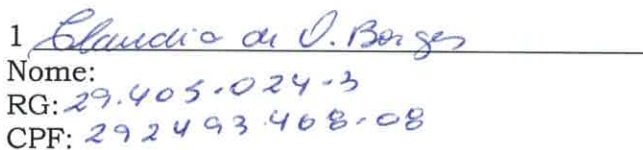 1 Claudia de O. Borges
Nome:
RG: 29.405.024-3
CPF: 292493.468-08